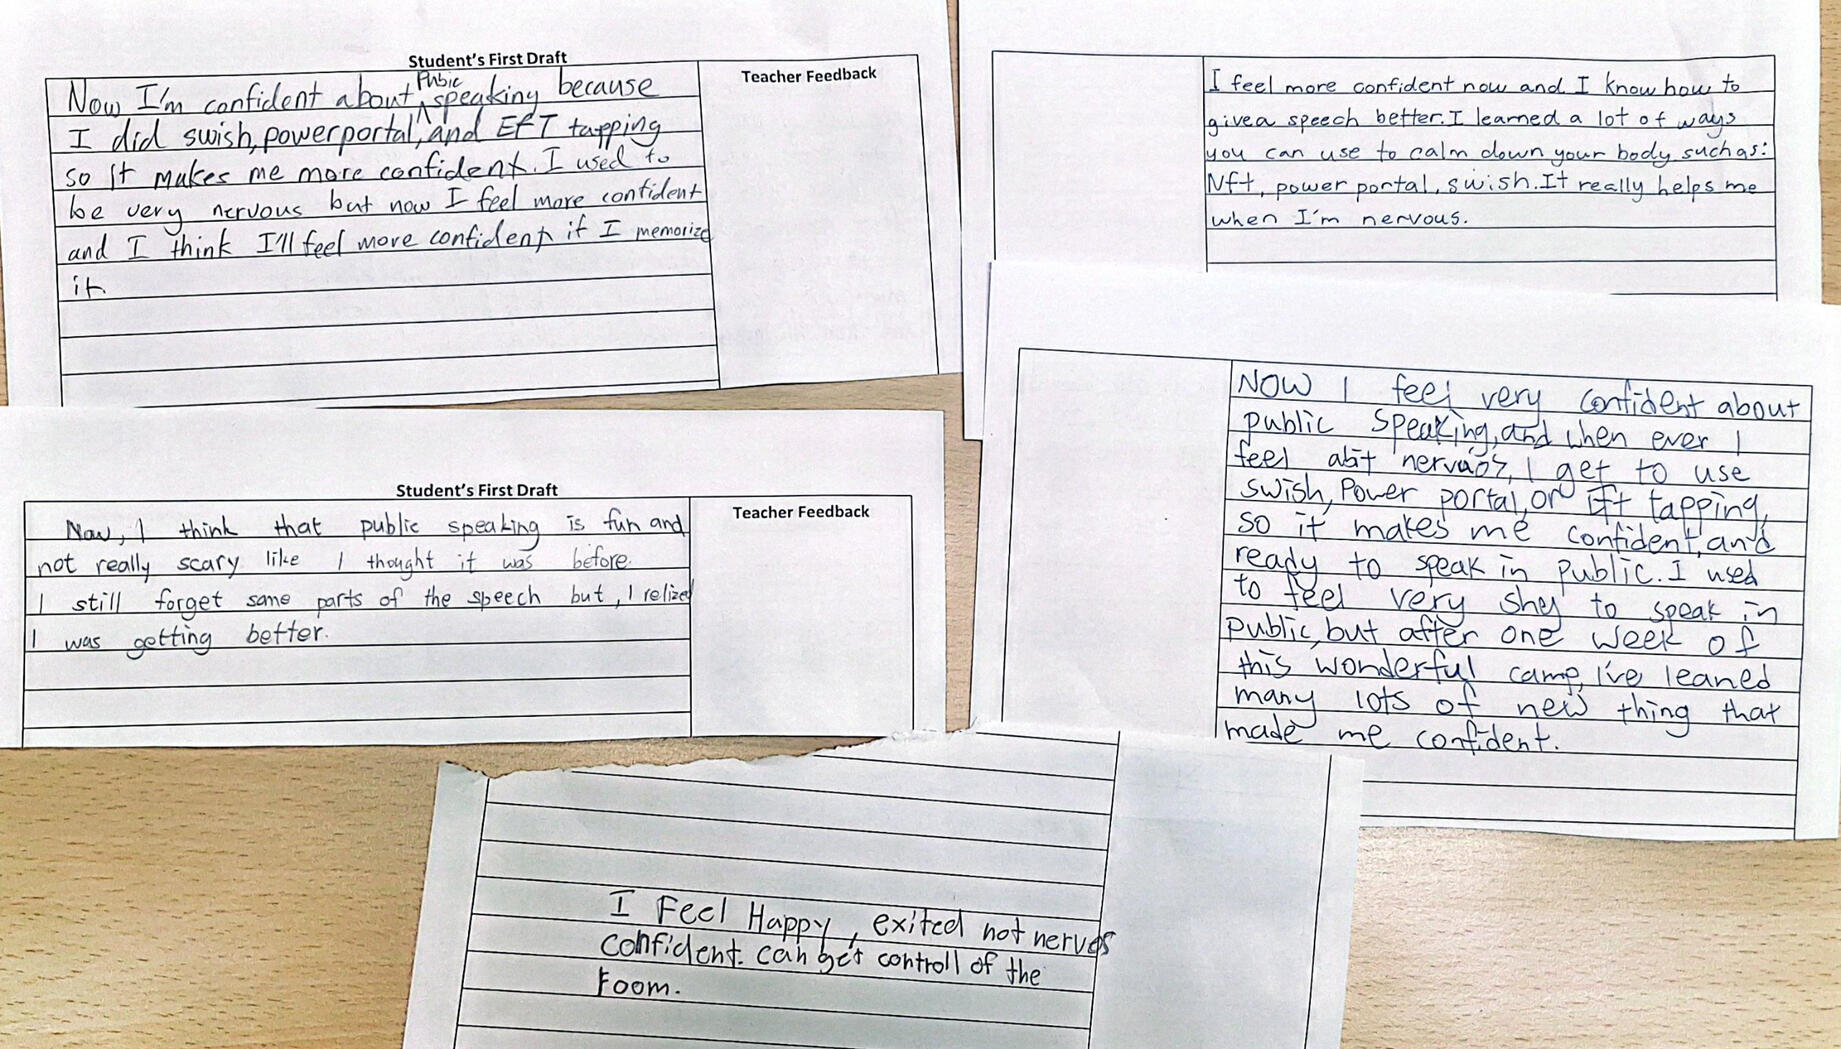 Student's First Draft
Teacher Feedback
Pubic
Now I'm confident about speaking because
I did swish, powerportal, and EFT tapping
so it makes me more confident. I used to
be very nervous but now I feel more confident
and I think I'll feel more confident if I memorize
it.
I feel more confident now and I know how to
give a speech better. I learned a lot of ways
you can use to calm down your body such as:
Nft, power portal, swish. It really helps me
when I'm nervous.
Student's First Draft
Teacher Feedback
Now, I think that public speaking is fun and
not really scary like I thought it was before.
I still forget some parts of the speech but, I relized
I was getting better.
NOW I feel very confident about
public speaking, and when ever I
feel abit nervous, I get to use
swish, Power portal, or Eft tapping,
so it makes me confident, and
ready to speak in public. I used
to feel very shy to speak in
public, but after one week of
this wonderful camp, i've leaned
many lots of new thing that
made me confident.
I Feel Happy, exited not nerves
confident. can get controll of the
room.